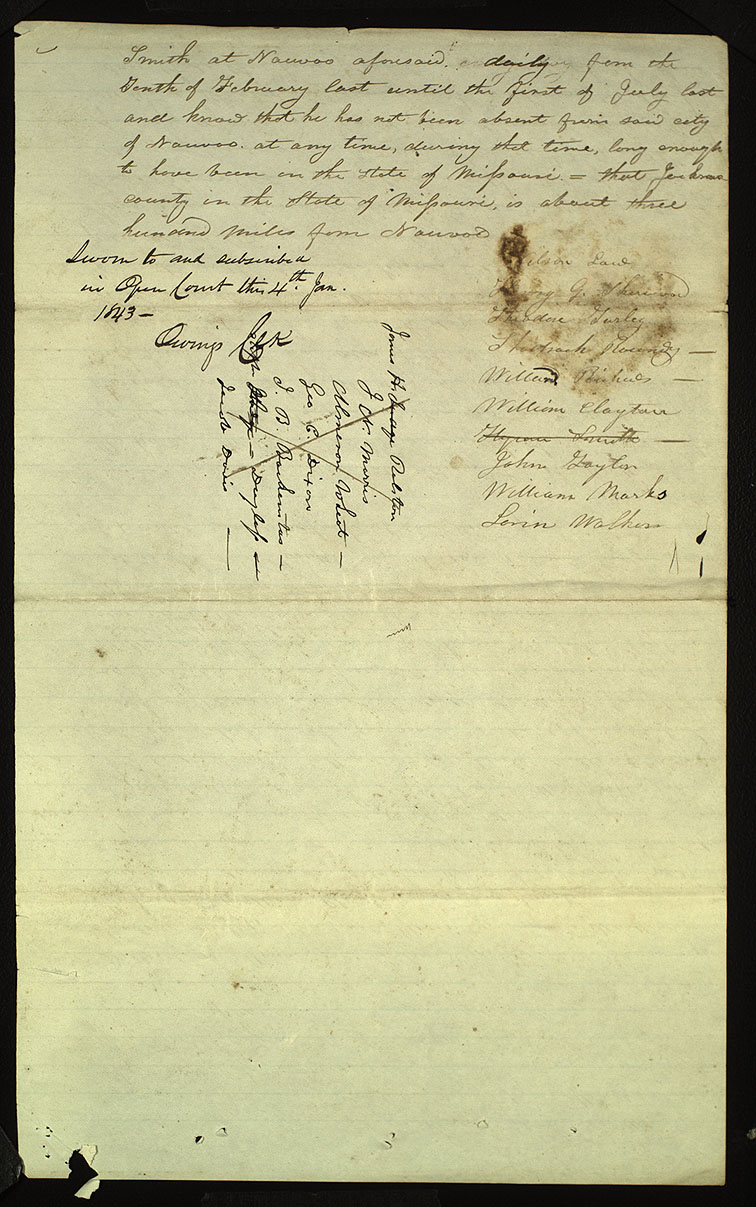 Smith at Nauvoo aforesaid. daily from the
Tenth of February last until the first of July last
and know that he has not been absent from said city
of Nauvoo. at any time, during that time, long enough
to have been in the State of Missouri. = that Jackson
county in the State of Missouri, is about three
hundred miles from Nauvoo
Sworn to and subscribed
in Open Court this 4th. Jan.
1843 —
Owings Clk
Wilson Law
Henry G. Sherwood
Theodore Turley
Shadrach Roundy —
Willard Richards —
William Clayton
Hyrum Smith —
John Taylor
William Marks
Lorin Walker
James H. Ralston
J. N. Morris
Almeron Wheat —
Geo. C. Dixon
J. B. Backenstos —
Douglass
Jacob Davis —